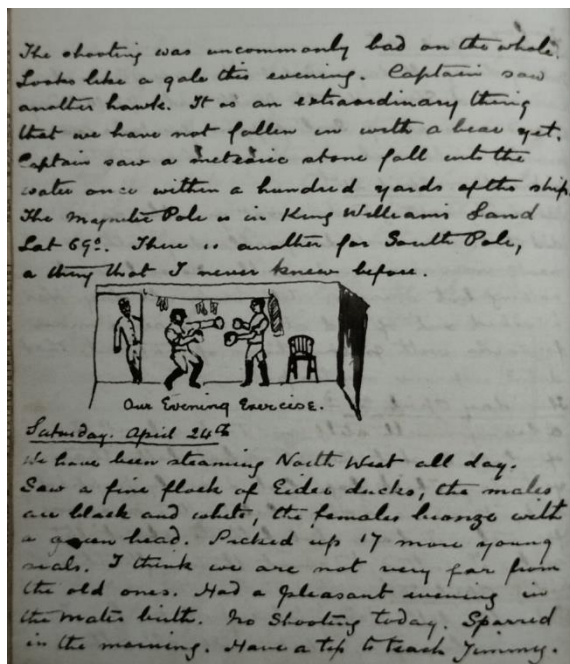 The shooting was uncommonly bad on the whole.
Looks like a gale this evening. Captain saw
another hawk. It is an extraordinary thing
that we have not fallen in with a bear yet.
Captain saw a meteoric stone fall into the
water once within a hundred yards of the ship.
The Magnetic Pole is in King William's Land
Lat 69°. There is another for South Pole,
a thing that I never knew before.
Our Evening Exercise.
Saturday. April 24th
We have been steaming North West all day.
Saw a fine flock of Eider ducks, the males
are black and white, the females bronze with
a green head. Picked up 17 more young
seals. I think we are not very far from
the old ones. Had a pleasant evening in
the mates birth. No Shooting today. Sparred
in the morning. Have a tip to teach Jimmy.